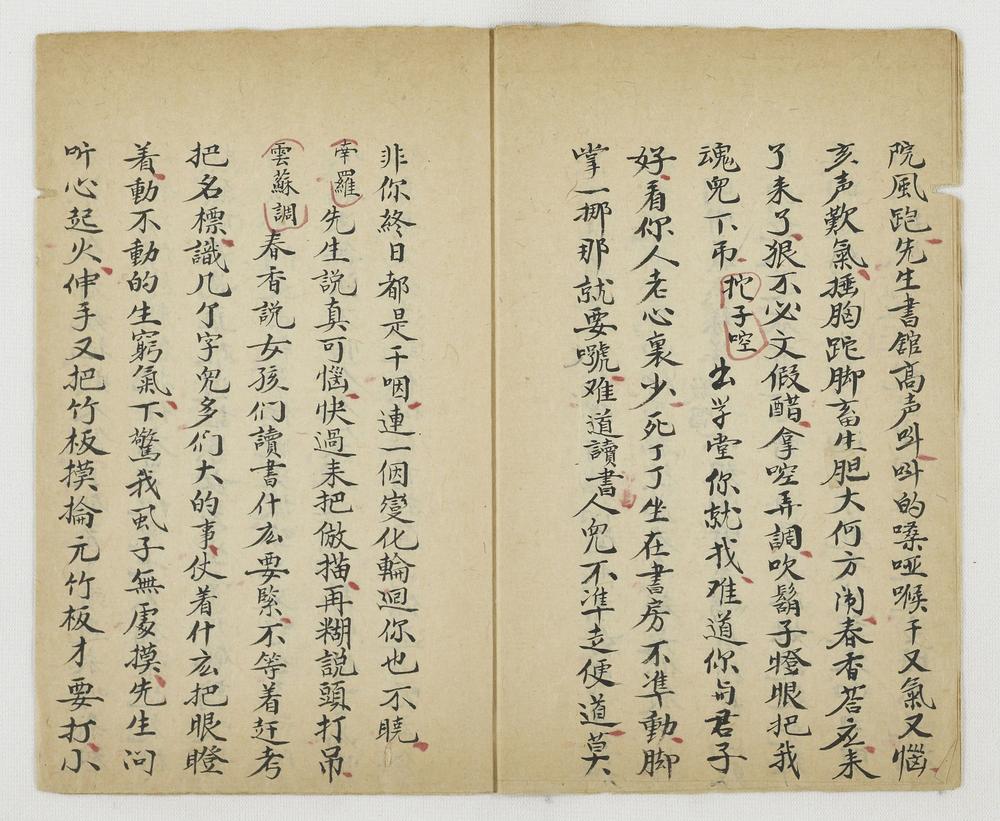 院風跑先生書館高声叫叫的嗓哑喉干又氣又惱
亥声歎氣捶胸跎脚畜生胆大何方闹春香荅应来
了来了狠不必文假醋拿啌弄調吹鬍子瞪眼把我
魂兒下吊柁子啌出学堂你就找难道你与君子
好看你人老心裏少死丁丁坐在書房不凖動脚
掌一挪那就要嚎难道讀書人兒不凖走便道莫
非你終日都是干咽連一個變化輪迴你也不曉
南羅先生説真可惱快過来把倣描再糊説頭打吊
雲蘇調春香説女孩们讀書什庅要緊不等着赶考
把名標識几个字兒多们大的事仗着什庅把眼瞪
着動不動的生窮氣下驚我風子無處摸先生问
听心起火伸手又把竹板摸掄元竹板才要打小